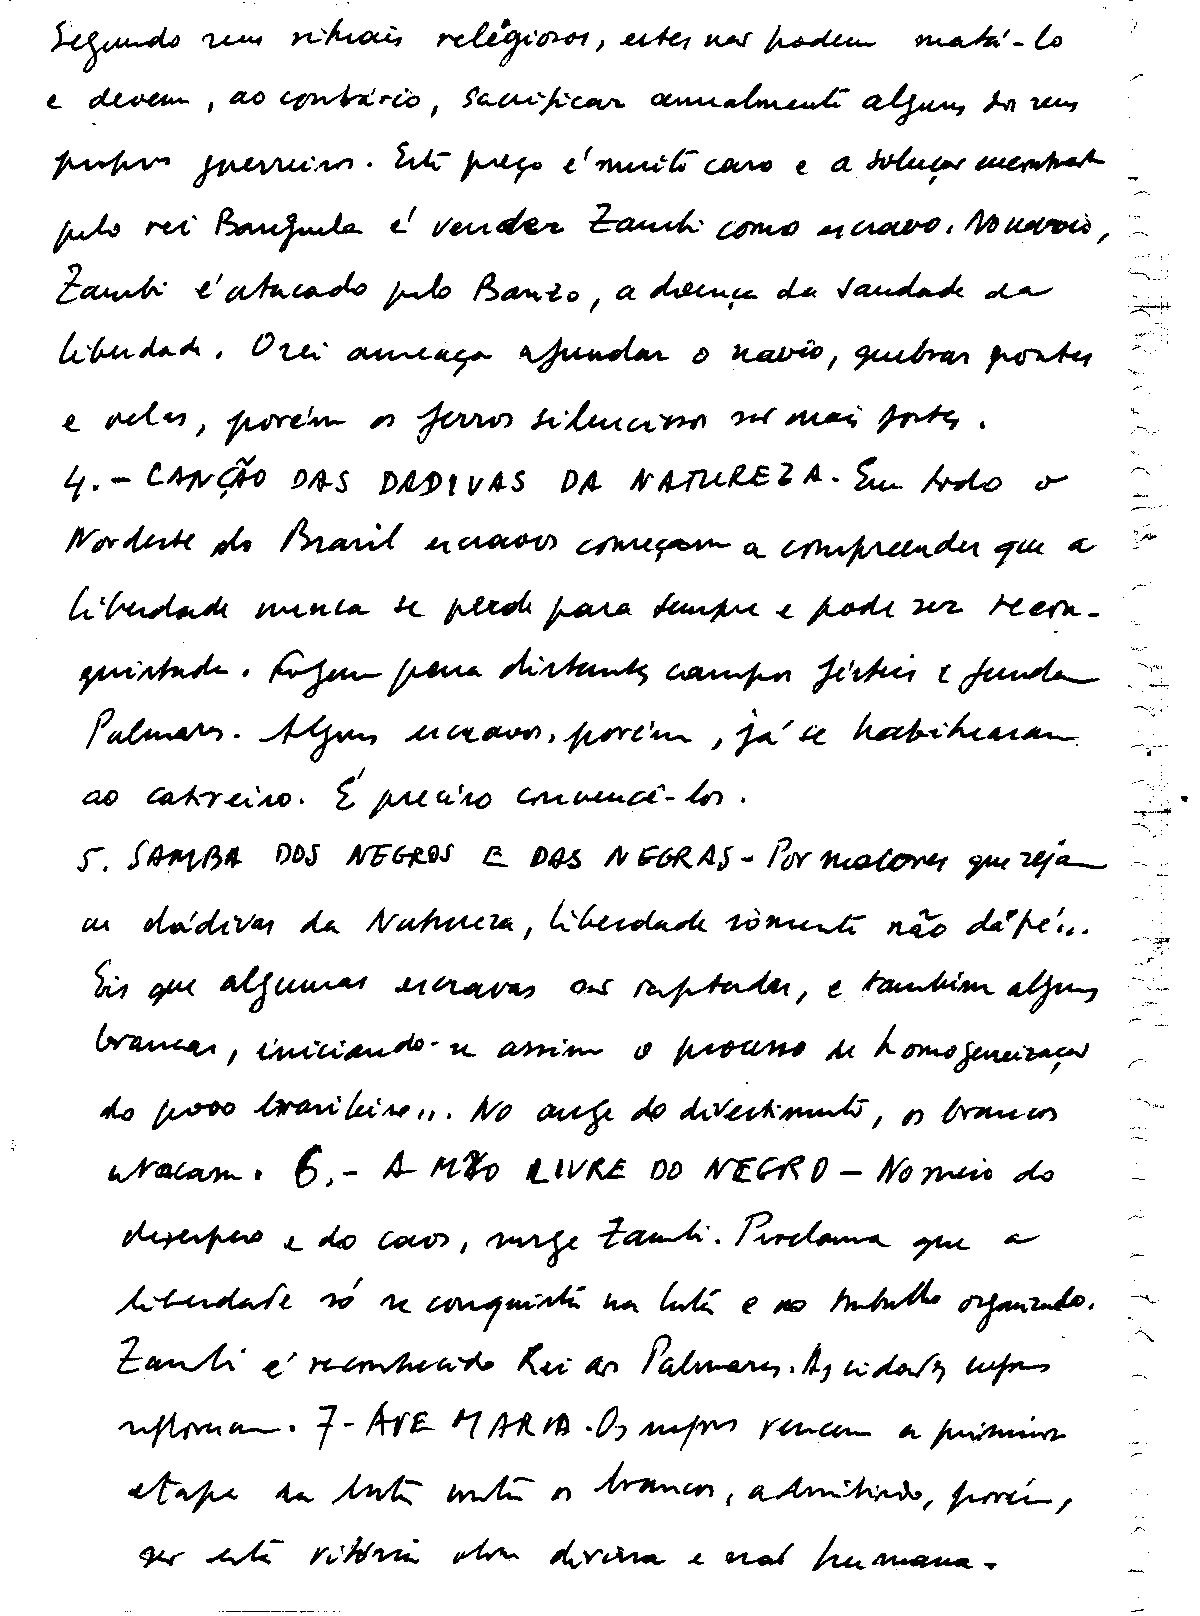 Segundo seus rituais religiosos, estes não podem matá-lo
e devem, ao contrário, sacrificar anualmente alguns dos seus
próprios guerreiros. Este preço é muito caro e a solução encontrada
pelo rei Banguela é vender Zambi como escravo. No navio,
Zambi é atacado pelo Banzo, a doença da saudade da
liberdade. O rei ameaça afundar o navio, quebrar pontes
e velas, porém os ferros silenciosos são mais fortes.
4. - CANÇÃO DAS DADIVAS DA NATUREZA. Em todo o
Nordeste do Brasil escravos começam a compreender que a
liberdade nunca se perde para sempre e pode ser recon-
quistada. Fogem para distantes campos férteis e fundam
Palmares. Alguns escravos, porém, já se habituaram
ao cativeiro. É preciso convencê-los.
5. SAMBA DOS NEGROS E DAS NEGRAS - Por maiores que sejam
as dádivas da Natureza, liberdade sòmente não dá pé...
Eis que algumas escravas são raptadas, e também algumas
brancas, iniciando-se assim o processo de homogeneização
do povo brasileiro... No auge do divertimento, os brancos
atacam. 6. - A MÃO LIVRE DO NEGRO - No meio do
desespero e do caos, surge Zambi. Proclama que a
liberdade só se conquista na luta e no trabalho organizado.
Zambi é reconhecido Rei dos Palmares. As cidades negras
reflorescem. 7 - AVE MARIA. Os negros vencem a primeira
etapa da luta contra os brancos, admitindo, porém,
ser esta vitória obra divina e não humana.